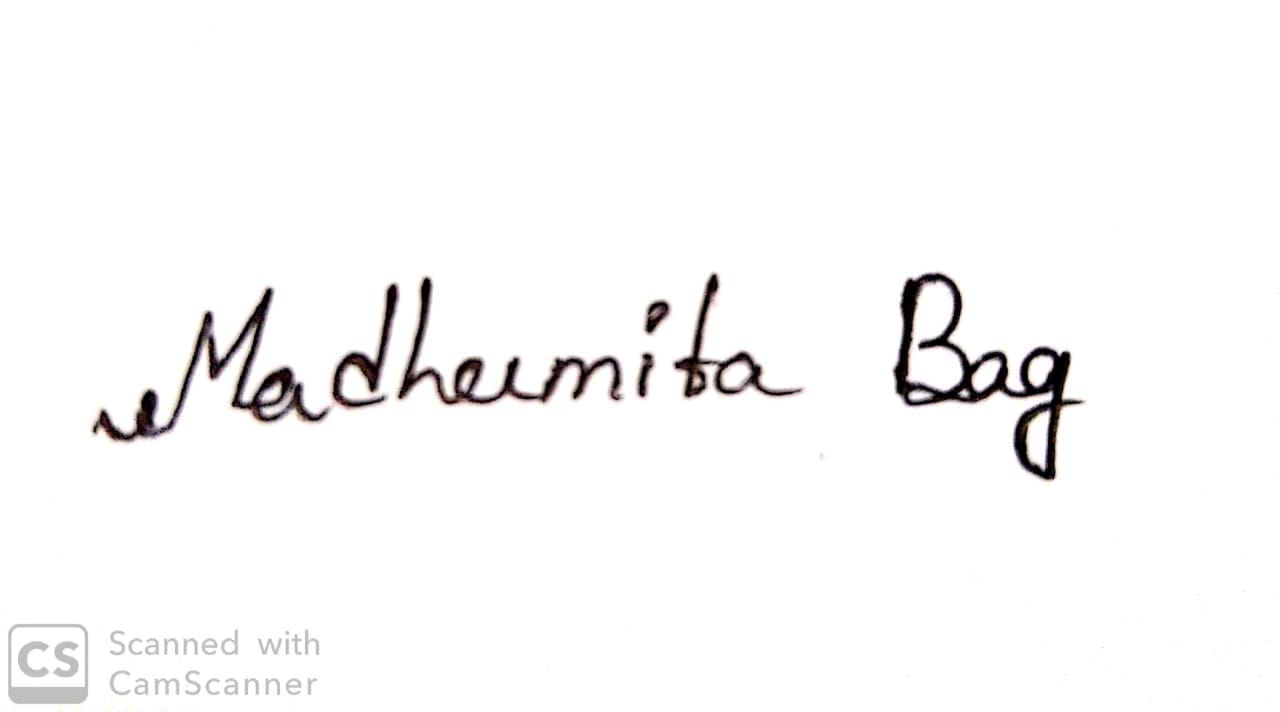 Madhumita Bag
CS Scanned with
CamScanner